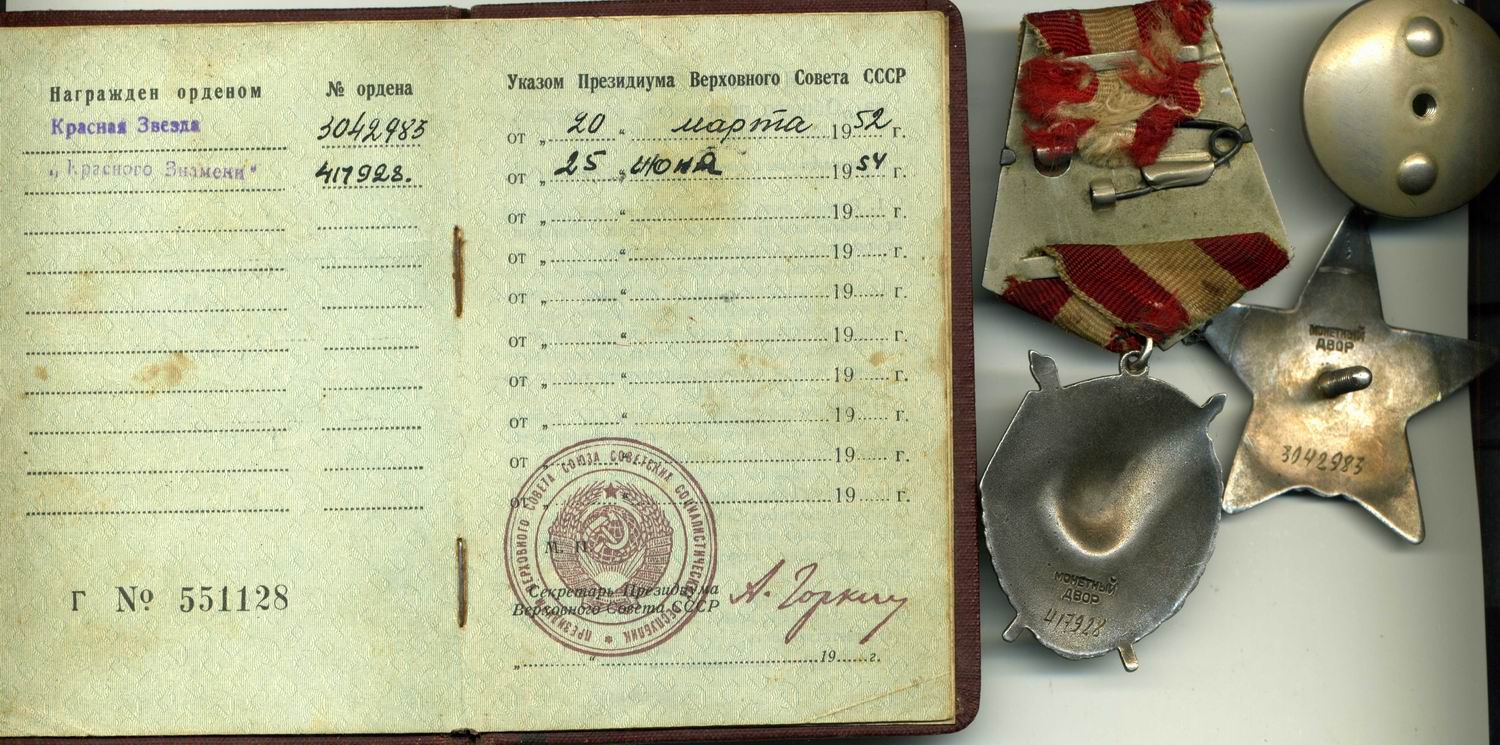 Награжден орденом
№ ордена
Красная Звезда
3042983
„Красного Знамени"
417928.
Г № 551128
Указом Президиума Верховного Совета СССР
от „ 20 “ марта 1952 г.
от „ 25 “ июня 1954 г.
от „ “ 19 г.
от „ “ 19 г.
от „ “ 19 г.
от „ “ 19 г.
от „ “ 19 г.
от „ “ 19 г.
от „ “ 19 г.
от „ “ 19 г.
ПРЕЗИДИУМ ВЕРХОВНОГО СОВЕТА СОЮЗА СОВЕТСКИХ СОЦИАЛИСТИЧЕСКИХ РЕСПУБЛИК
М. П.
Секретарь Президиума
Верховного Совета СССР
А. Горкин
„ “ 19 г.
МОНЕТНЫЙ
ДВОР
3042983
МОНЕТНЫЙ
ДВОР
417928